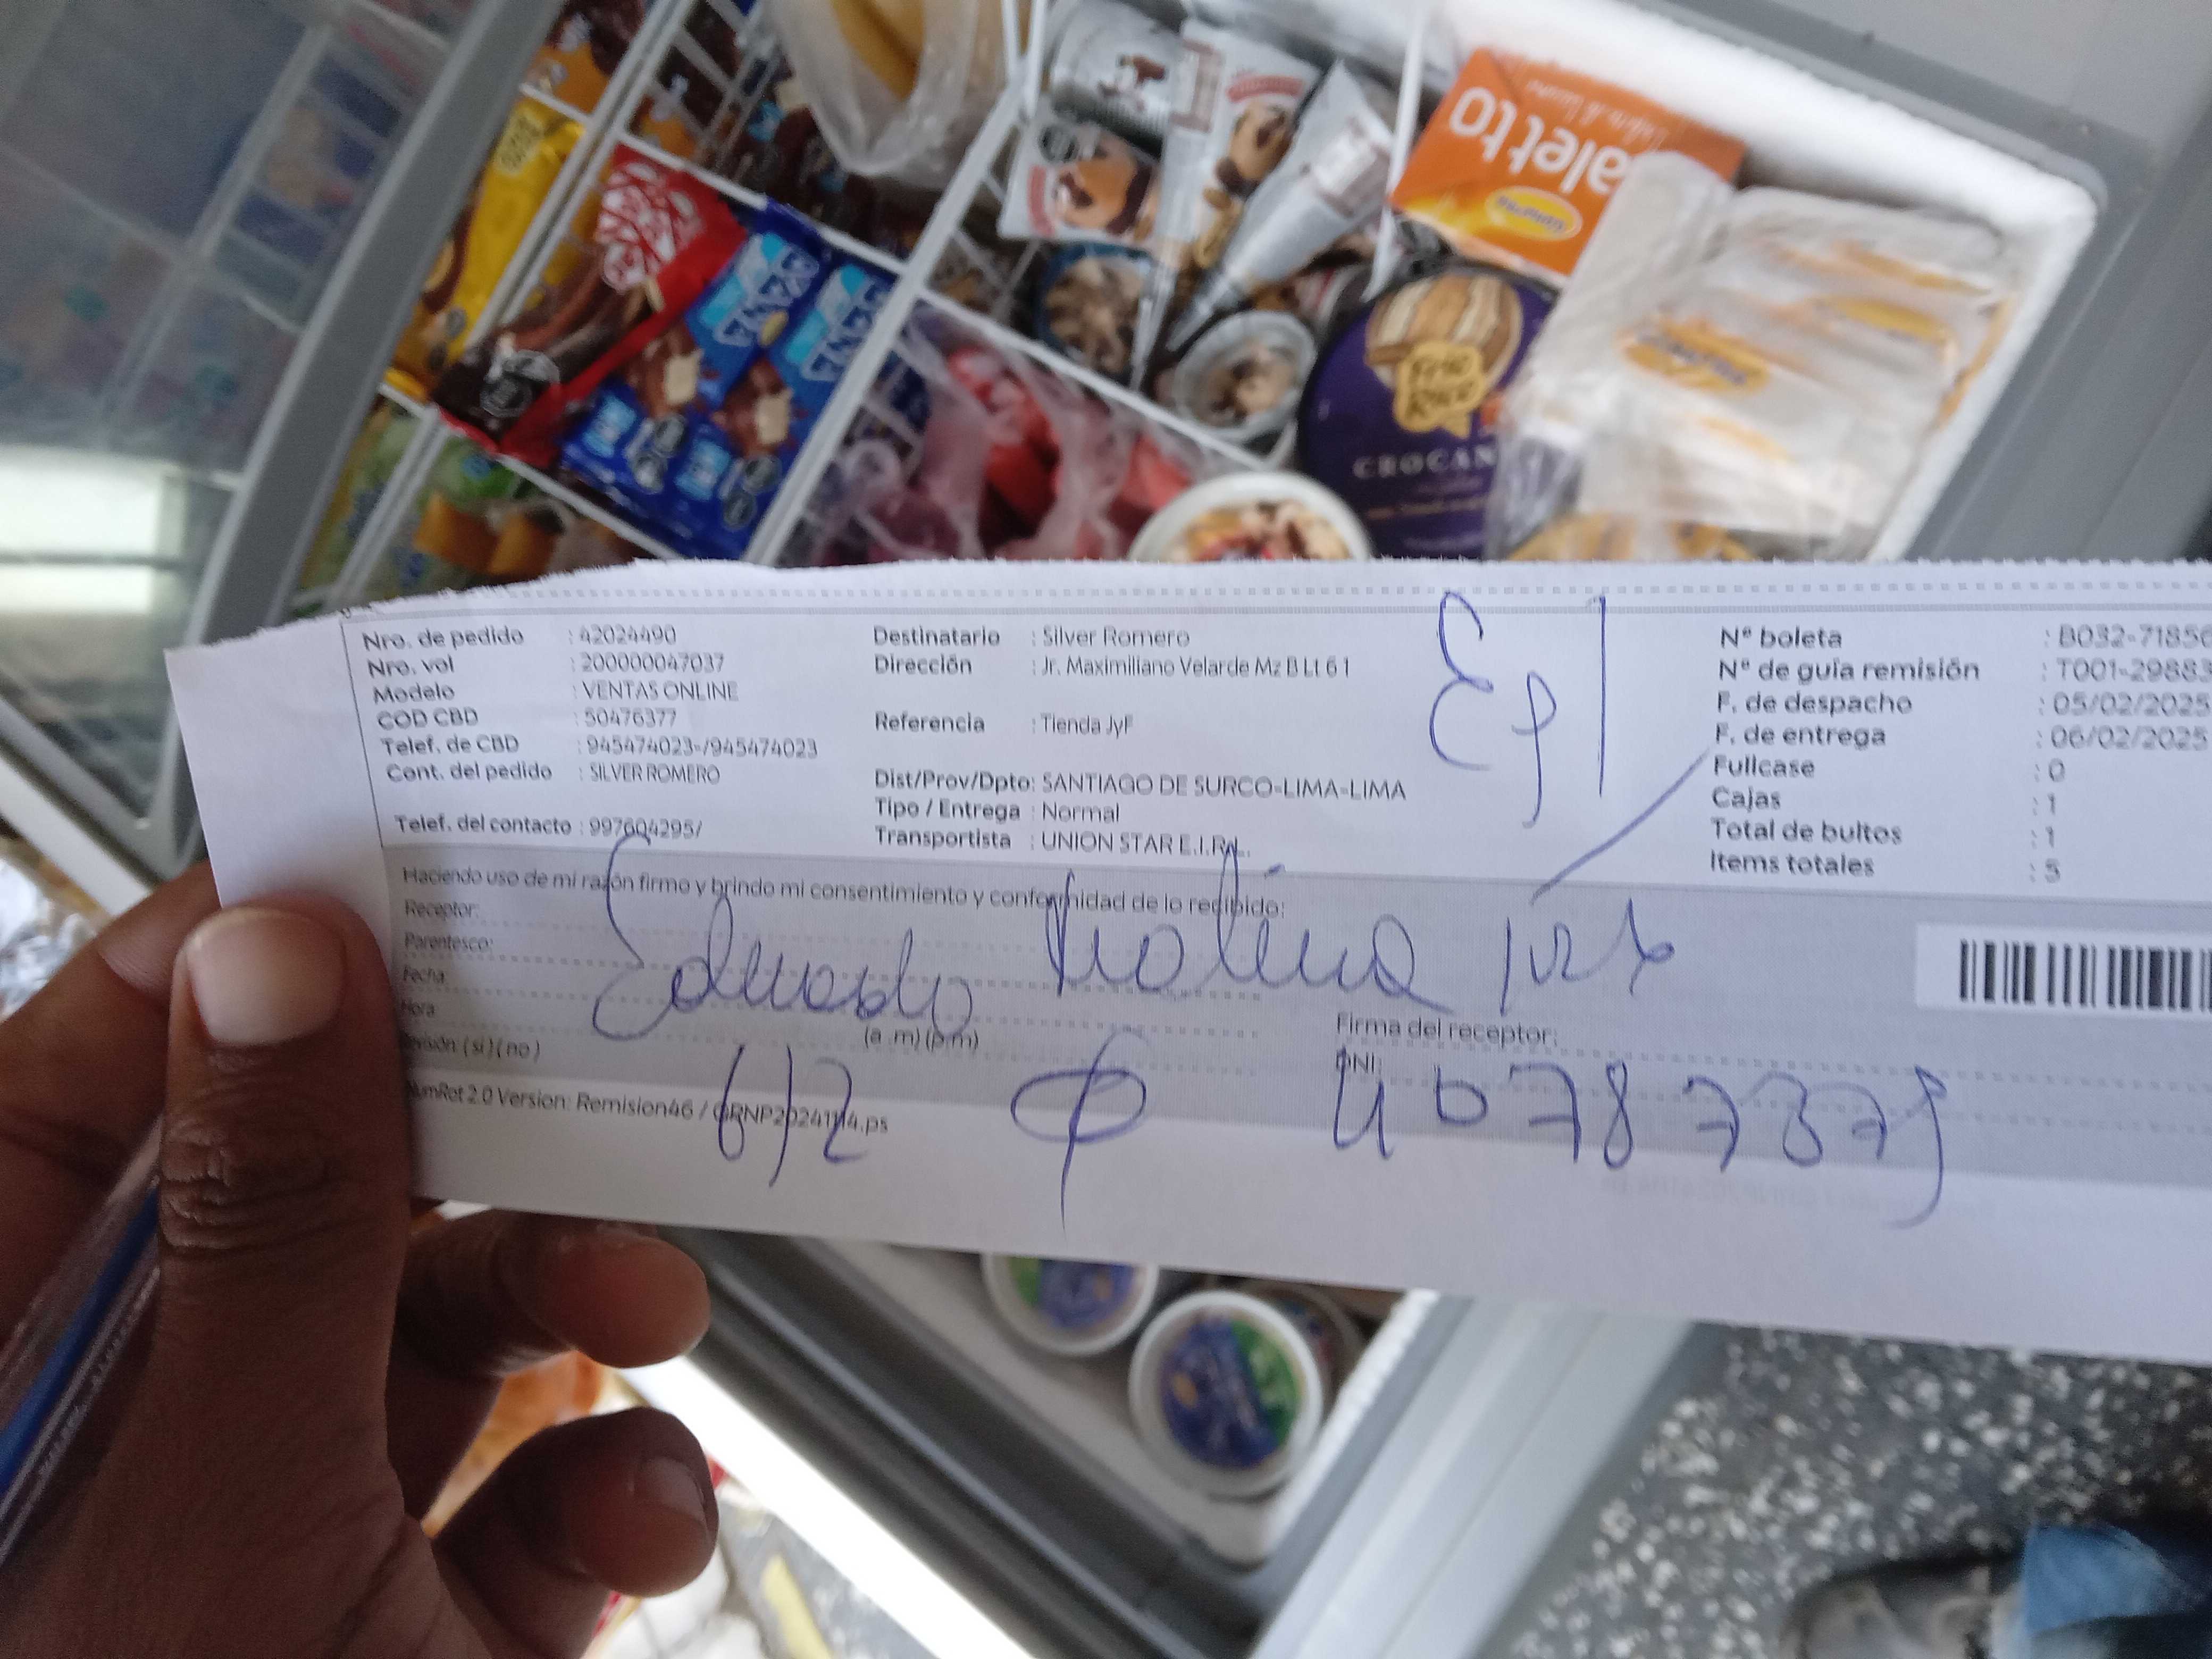 aletto
DONOFRIO
FRIO
RICO
CROCAN
Nro. de pedido : 42024490
Nro. vol : 200000047037
Modelo : VENTAS ONLINE
COD CBD : 50476377
Telef. de CBD : 945474023-/945474023
Cont. del pedido : SILVER ROMERO
Telef. del contacto : 997604295/
Destinatario : Silver Romero
Dirección : Jr. Maximiliano Velarde Mz B Lt 6 1
Referencia : Tienda JyF
Dist/Prov/Dpto: SANTIAGO DE SURCO-LIMA-LIMA
Tipo / Entrega : Normal
Transportista : UNION STAR E.I.R.L.
N° boleta : B032-71856
N° de guía remisión : T001-29883
F. de despacho : 05/02/2025
F. de entrega : 06/02/2025
Fullcase : 0
Cajas : 1
Total de bultos : 1
Items totales : 5
Haciendo uso de mi razón firmo y brindo mi consentimiento y conformidad de lo recibido:
Receptor:
Parentesco:
Fecha
Hora
(a .m) (p.m)
(si) (no)
Eduardo Molina
Firma del receptor:
DNI:
6/2
NumRot 2.0 Version: Remision46 / GRNP20241114.ps